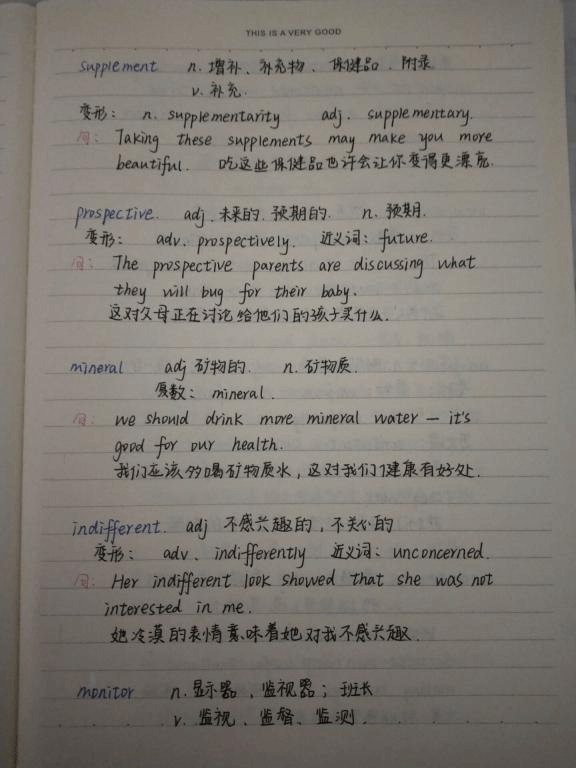 THIS IS A VERY GOOD
supplement n. 增补、补充物、保健品、附录
v. 补充.
变形: n. supplementarity adj. supplementary.
句: Taking these supplements may make you more
beautiful. 吃这些保健品也许会让你变得更漂亮.
prospective. adj. 未来的. 预期的. n. 预期.
变形: adv. prospectively. 近义词: future.
句: The prospective parents are discussing what
they will bug for their baby.
这对父母正在讨论给他们的孩子买什么.
mineral adj 矿物的. n. 矿物质.
复数: mineral.
句: we should drink more mineral water — it's
good for our health.
我们应该多喝矿物质水, 这对我们健康有好处.
indifferent. adj 不感兴趣的, 不关心的
变形: adv. indifferently 近义词: unconcerned.
句: Her indifferent look showed that she was not
interested in me.
她冷漠的表情意味着她对我不感兴趣.
monitor n. 显示器, 监视器; 班长
v. 监视、监督、监测.